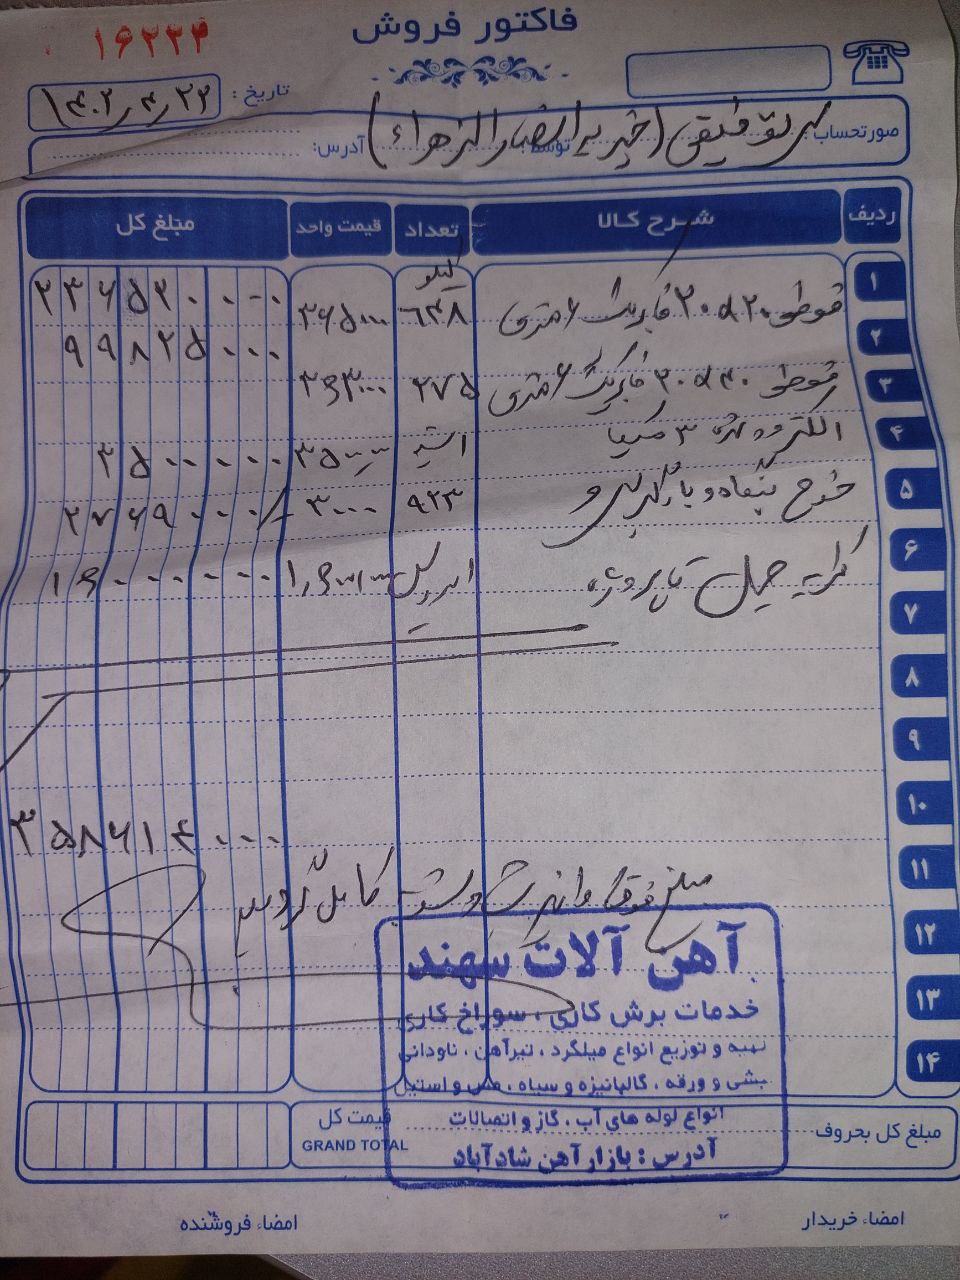 فاکتور فروش
۱۶۲۲۴
تاریخ : ۱۴۰۲/۴/۲۲
صورتحساب: توفیقی (خیریه انصار الزهراء)
توسط: آدرس:
ردیف شرح کالا تعداد قیمت واحد مبلغ کل
کیلو
۱ قوطی ۲۰×۲۰ فابریک ۶ متری ۶۴۸ ۳۶۵۰۰۰ ۲۳۶۵۲۰۰۰۰
۲ ۹۹۸۲۵۰۰۰
۳ قوطی ۴۰×۲۰ فابریک ۶ متری ۲۷۵ ۳۶۳۰۰۰
۴ الکترود ۳ ۱ بسته ۳۵۰۰۰۰۰ ۳۵۰۰۰۰۰
۵ خرج بنگاه و بارگیری ۹۲۳ ۳۰۰۰ ۲۷۶۹۰۰۰
۶ کرایه حمل تا پروژه ۱ سرویس ۱۶۰۰۰۰۰۰
۷
۸
۹
۱۰
۳۵۸۶۱۴۰۰۰
۱۱ مبلغ فوق واریز شد و تسویه کامل گردید
۱۲
۱۳
۱۴
آهن آلات سهند
خدمات برش کاری ، سوراخ کاری
تهیه و توزیع انواع میلگرد ، تیرآهن ، ناودانی
نبشی و ورقه ، گالوانیزه و سیاه ، مس و استیل
انواع لوله های آب ، گاز و اتصالات
آدرس : بازار آهن شادآباد
مبلغ کل بحروف قیمت کل
GRAND TOTAL
امضاء خریدار امضاء فروشنده